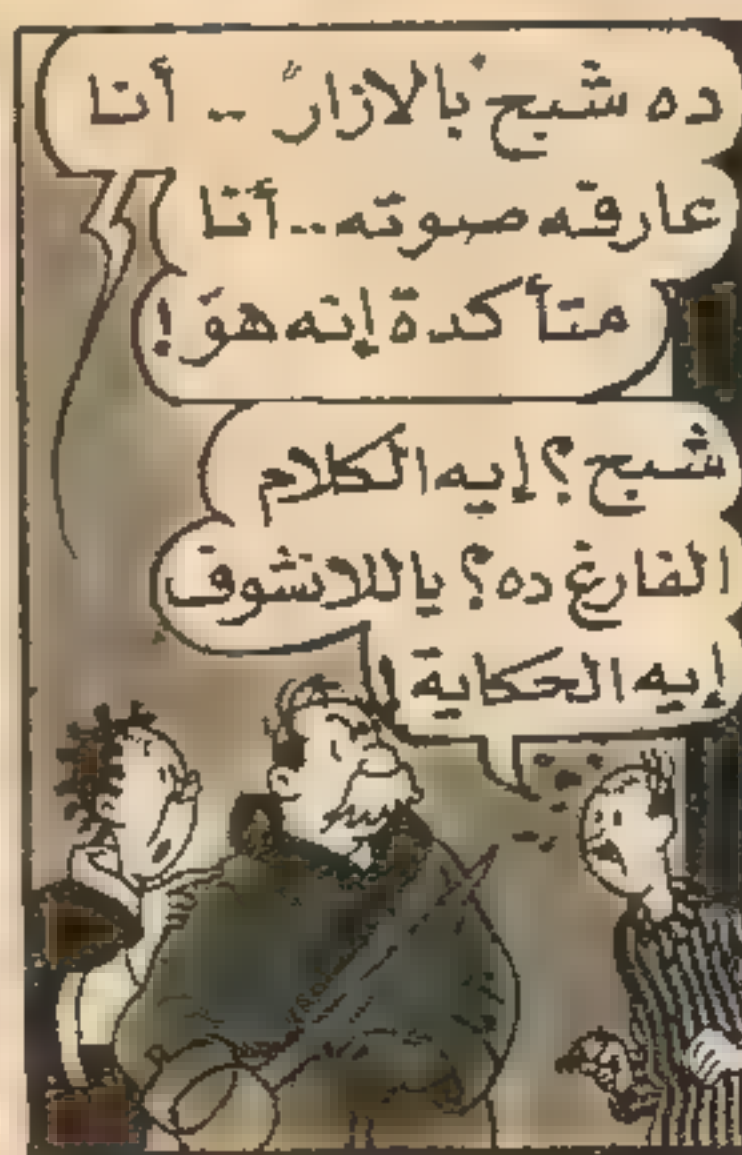 ده شبح بالازار .. أنا
عارفه صوته .. أنا
متأكدة إنه هو !
شبح ؟ إيه الكلام
الفارغ ده ؟ ياللا نشوف
إيه الحكاية !